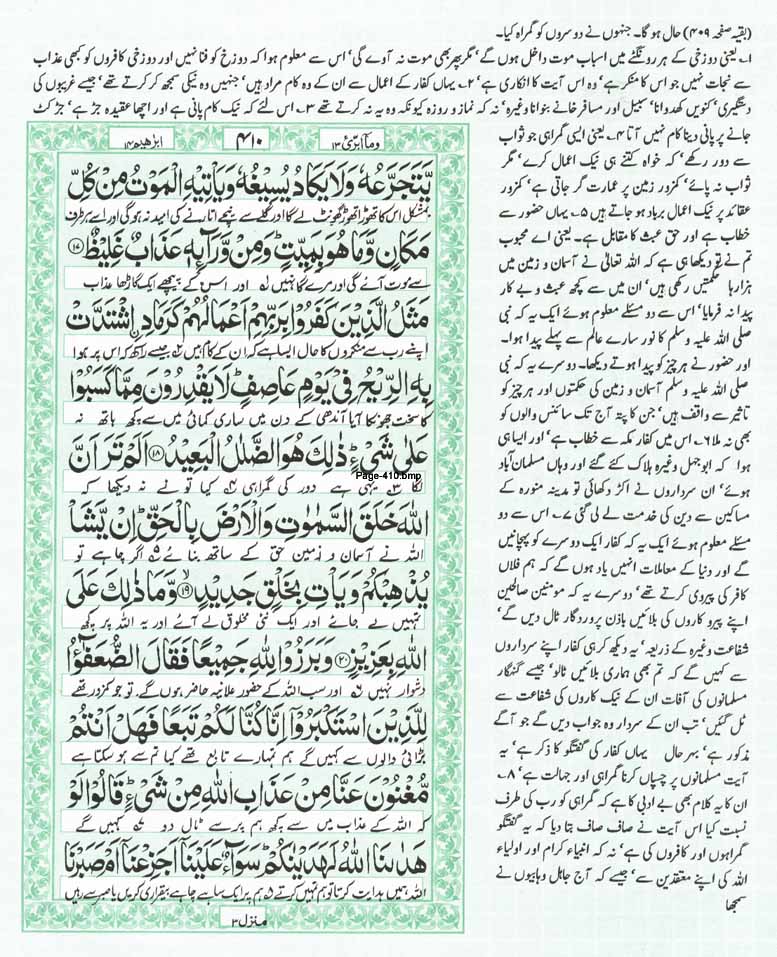 (بقیہ صفحہ ۴۰۹) حال ہوگا۔ جنہوں نے دوسروں کو گمراہ کیا۔
۱۔ یعنی دوزخی کے ہر رونگٹے میں اسباب موت داخل ہوں گے' مگر پھر بھی موت نہ آوے گی' اس سے معلوم ہوا کہ دوزخ کو فنا نہیں اور دوزخی کافروں کو کبھی عذاب
سے نجات نہیں جو اس کا منکر ہے' وہ اس آیت کا انکاری ہے' ۲۔ یہاں کفار کے اعمال سے ان کے وہ کام مراد ہیں' جنہیں وہ نیکی سمجھ کر کرتے تھے' جیسے غریبوں کی
دستگیری' کنویں کھدوانا' سبیل اور مسافر خانے بنوانا وغیرہ' نہ کہ نماز و روزہ کیونکہ وہ یہ نہ کرتے تھے ۳۔ اس لئے کہ نیک کام پانی ہے اور اچھا عقیدہ جڑ ہے' جڑ کٹ
جانے پر پانی دینا کام نہیں آتا ۴۔ یعنی ایسی گمراہی جو ثواب
سے دور رکھے' کہ خواہ کتنے ہی نیک اعمال کرے' مگر
ثواب نہ پائے' کمزور زمین پر عمارت گر جاتی ہے' کمزور
عقائد پر نیک اعمال برباد ہو جاتے ہیں ۵۔ یہاں حضور سے
خطاب ہے اور حق عبث کا مقابل ہے۔ یعنی اے محبوب
تم نے تو دیکھا ہی ہے کہ اللہ تعالیٰ نے آسمان و زمین میں
ہزارہا حکمتیں رکھی ہیں' ان میں سے کچھ عبث و بے کار
پیدا نہ فرمایا' اس سے دو مسئلے معلوم ہوئے ایک یہ کہ نبی
صلی اللہ علیہ و سلم کا نور سارے عالم سے پہلے پیدا ہوا۔
اور حضور نے ہر چیز کو پیدا ہوتے دیکھا۔ دوسرے یہ کہ نبی
صلی اللہ علیہ وسلم آسمان و زمین کی حکمتوں اور ہر چیز کو
تاثیر سے واقف ہیں' جن کا پتہ آج تک سائنس والوں کو
بھی نہ ملا ۶۔ اس میں کفار مکہ سے خطاب ہے' اور ایسا ہی
ہوا کہ ابوجہل وغیرہ ہلاک کئے گئے اور وہاں مسلمان آباد
ہوئے' ان سرداروں نے اکڑ دکھائی تو مدینہ منورہ کے
مساکین سے دین کی خدمت لے لی گئی ۷۔ اس سے دو
مسئلے معلوم ہوئے ایک یہ کہ کفار ایک دوسرے کو پہچانیں
گے اور دنیا کے معاملات انہیں یاد ہوں گے کہ ہم فلاں
کافر کی پیروی کرتے تھے' دوسرے یہ کہ مومنین صالحین
اپنے پیرو کاروں کی بلائیں باذن پروردگار ٹال دیں گے'
شفاعت وغیرہ کے ذریعہ' یہ دیکھ کر ہی کفار اپنے سرداروں
سے کہیں گے کہ تم بھی ہماری بلائیں ٹالو' جیسے گنہگار
مسلمانوں کی آفات ان کے نیک کاروں کی شفاعت سے
ٹل گئیں' تب ان کے سردار وہ جواب دیں گے جو آگے
مذکور ہے' بہرحال یہاں کفار کی گفتگو کا ذکر ہے' یہ
آیت مسلمانوں پر چسپاں کرنا گمراہی اور جہالت ہے' ۸۔
ان کا یہ کلام بھی بے ادبی کا ہے کہ گمراہی کو رب کی طرف
نسبت کیا اس آیت نے صاف صاف بتا دیا کہ یہ گفتگو
گمراہوں اور کافروں کی ہے' نہ کہ انبیاء کرام اور اولیاء
اللہ کی اپنے معتقدین سے' جیسے کہ آج جاہل وہابیوں نے
سمجھا
ومآ ابرئ ۱۳
۴۱۰
ابرٰهيم ۱۴
يَّتَجَرَّعُهٗ وَلَا يَكَادُ يُسِيْغُهٗ وَيَاْتِيْهِ الْمَوْتُ مِنْ كُلِّ
بمشکل اس کا تھوڑا تھوڑا گھونٹ لے گا اور گلے سے نیچے اتارنے کی امید نہ ہوگی اور اسے ہر طرف
مَكَانٍ وَّمَا هُوَ بِمَيِّتٍ ؕ وَمِنْ وَّرَآىِٕهٖ عَذَابٌ غَلِيْظٌ ۝۱۷
سے موت آئے گی اور مرے گا نہیں ۱ اور اس کے پیچھے ایک گاڑھا عذاب
مَثَلُ الَّذِيْنَ كَفَرُوْا بِرَبِّهِمْ اَعْمَالُهُمْ كَرَمَادِ ِۨاشْتَدَّتْ
اپنے رب سے منکروں کا حال ایسا ہے کہ ان کے کام ہیں ۲ جیسے راکھ کہ اس پر ہوا
بِهِ الرِّيْحُ فِيْ يَوْمٍ عَاصِفٍ ؕ لَا يَقْدِرُوْنَ مِمَّا كَسَبُوْا
کا سخت جھونکا آیا آندھی کے دن میں ساری کمائی میں سے کچھ ہاتھ نہ
عَلٰى شَيْءٍ ؕ ذٰلِكَ هُوَ الضَّلٰلُ الْبَعِيْدُ ۝۱۸ اَلَمْ تَرَ اَنَّ
لگا ۳ یہی ہے دور کی گمراہی ۴ کیا تو نے نہ دیکھا کہ
Page-410.bmp
اللّٰهَ خَلَقَ السَّمٰوٰتِ وَالْاَرْضَ بِالْحَقِّ ؕ اِنْ يَّشَاْ
اللہ نے آسمان و زمین حق کے ساتھ بنائے ۵ اگر چاہے تو
يُذْهِبْكُمْ وَيَاْتِ بِخَلْقٍ جَدِيْدٍ ۝۱۹ وَّمَا ذٰلِكَ عَلَى
تمہیں لے جائے اور ایک نئی مخلوق لے آئے اور یہ اللہ پر کچھ
اللّٰهِ بِعَزِيْزٍ ۝۲۰ وَبَرَزُوْا لِلّٰهِ جَمِيْعًا فَقَالَ الضُّعَفٰٓؤُا
دشوار نہیں ۶ اور سب اللہ کے حضور علانیہ حاضر ہوں گے۔ تو جو کمزور تھے
لِلَّذِيْنَ اسْتَكْبَرُوْٓا اِنَّا كُنَّا لَكُمْ تَبَعًا فَهَلْ اَنْتُمْ
بڑائی والوں سے کہیں گے ہم تمہارے تابع تھے کیا تم سے ہو سکتا ہے
مُّغْنُوْنَ عَنَّا مِنْ عَذَابِ اللّٰهِ مِنْ شَيْءٍ ؕ قَالُوْا لَوْ
کہ اللہ کے عذاب میں سے کچھ ہم پر سے ٹال دو ۷ کہیں گے
هَدٰىنَا اللّٰهُ لَهَدَيْنٰكُمْ ؕ سَوَآءٌ عَلَيْنَآ اَجَزِعْنَآ اَمْ صَبَرْنَا
اللہ ہمیں ہدایت کرتا تو ہم تمہیں کرتے ۸ ہم پر ایک سا ہے چاہے بیقراری کریں یا صبر سے رہیں
منزل ۳